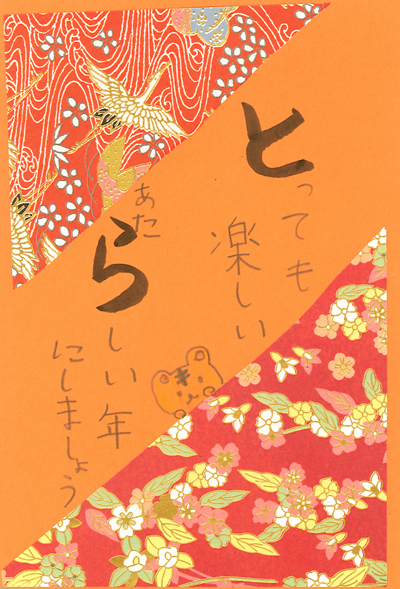 とっても
楽しい
あたらしい年
にしましょう